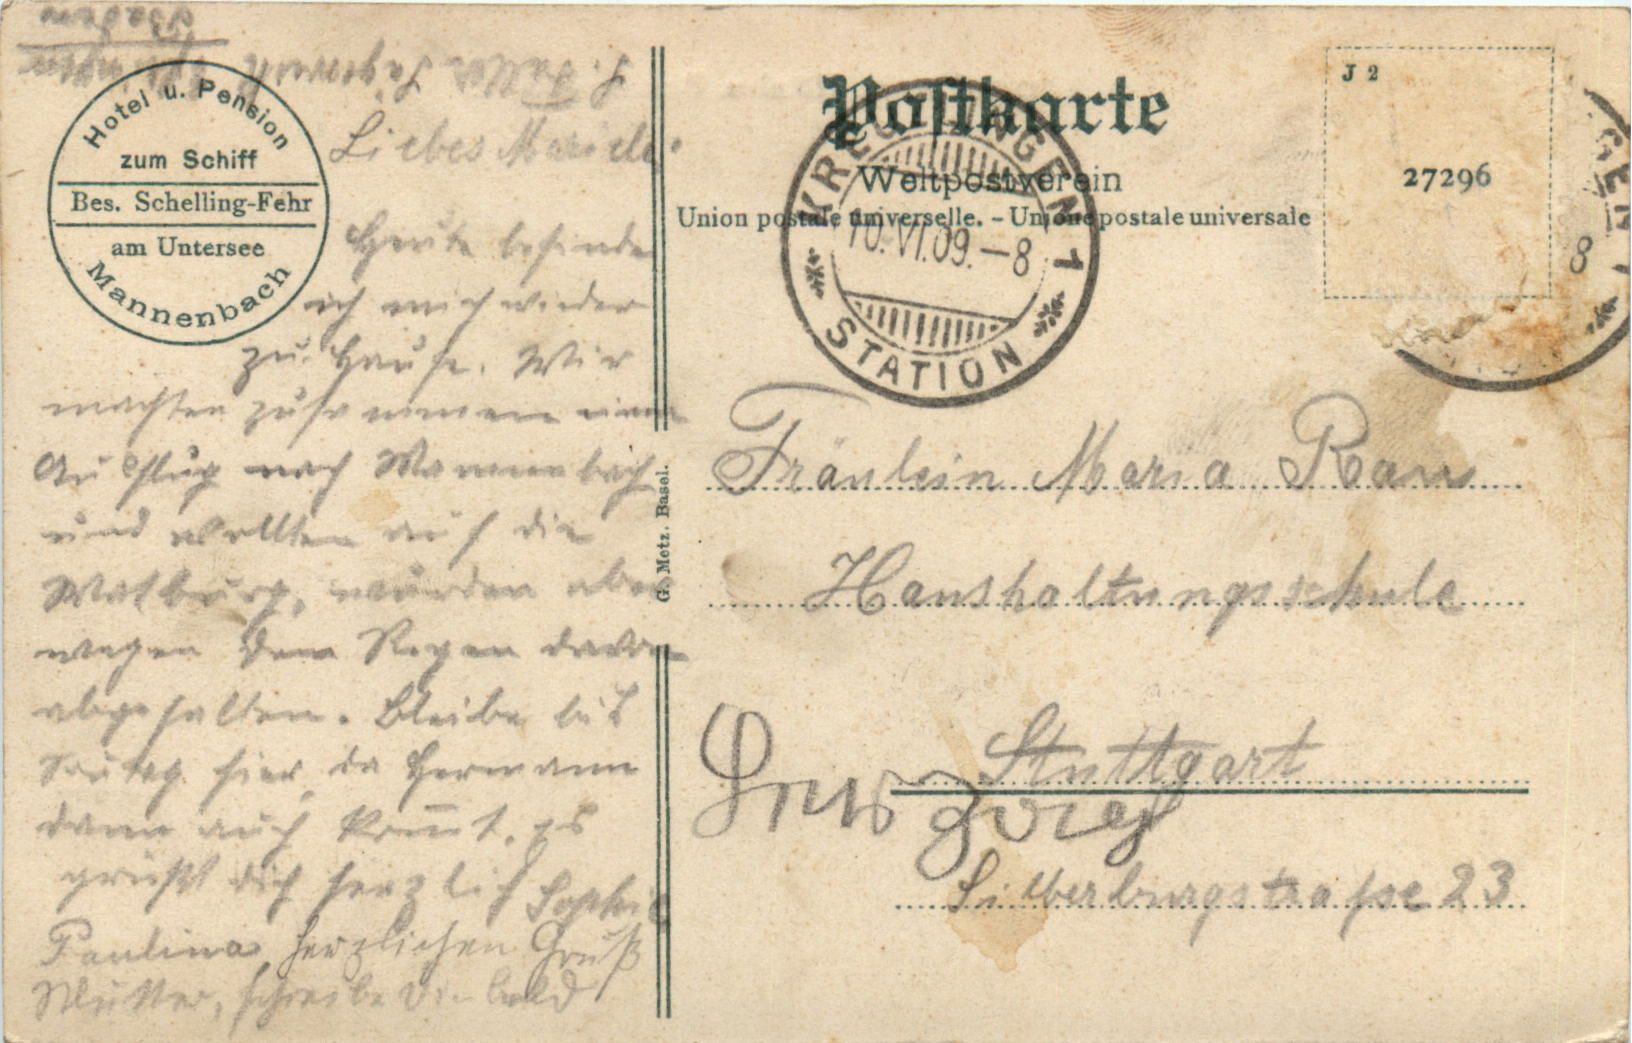 Hotel u. Pension
zum Schiff
Bes. Schelling-Fehr
am Untersee
Mannenbach
Baden
Liebes Mariele.
Heute befinde
ich mich wieder
zu Hause. Wir
machten zusammen einen
Ausflug nach Mannenbach
und wollten auf die
wurden aber
wegen dem Regen davon
abgehalten. Bleibe bis
hier, da Hermann
dann auch kommt. Es
grüßt dich herzlich Sophie
Paulina herzlichen Gruß
Mutter, schreibe bald
G. Metz. Basel.
Postkarte
Weltpostverein
Union postale universelle. – Unione postale universale
KREUZLINGEN 1
10.VI.09.–8
STATION
J 2
27296
GEN
8
Fräulein Maria Rau
Haushaltungsschule
Stuttgart
Silberburgstraße 23